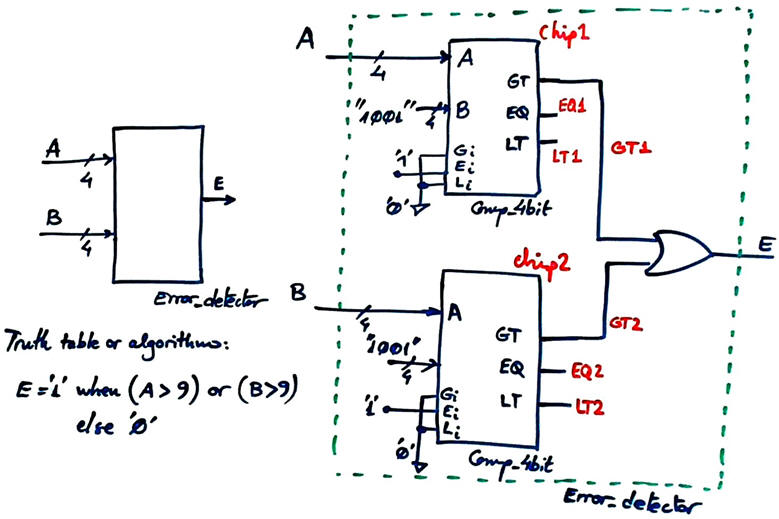 A
4
B
4
E
Error_detector
Truth table or algorithm:
E='1' when (A>9) or (B>9)
else '0'
A
4
chip1
A
"1001"
4
B
GT
EQ
LT
EQ1
LT1
GT1
'1'
'0'
Gi
Ei
Li
Comp_4bit
E
chip2
B
4
A
"1001"
4
GT
EQ
LT
GT2
EQ2
LT2
'1'
'0'
Gi
Ei
Li
Comp_4bit
Error_detector